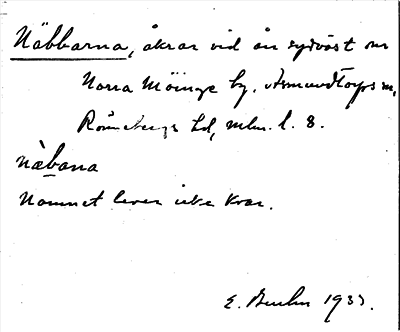 Näbbarna, åkrar vid ån sydväst om
Norra Möinge by, Asmundtorps sn,
Rönnebergs hd, mlm. l. 8.
nàb̲ana
Namnet lever icke kvar.
E. 1933.